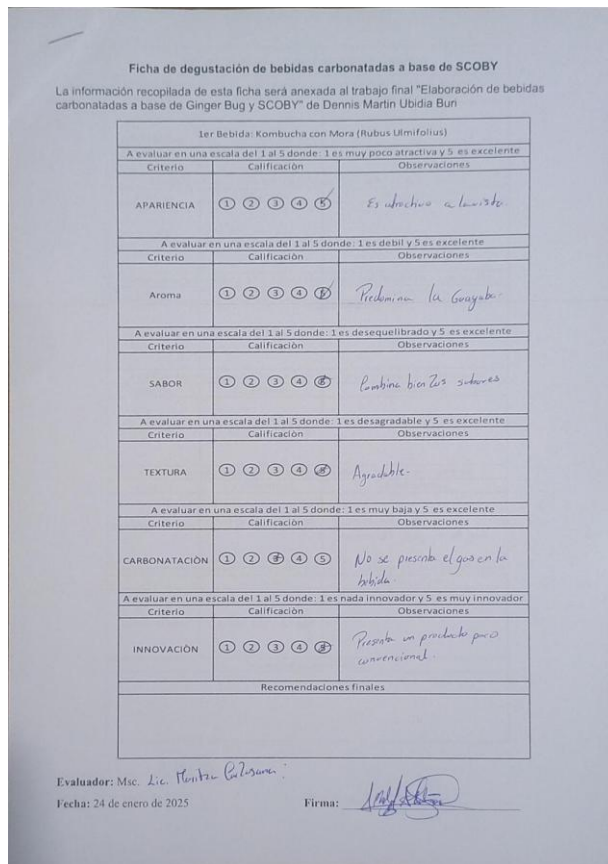 Ficha de degustación de bebidas carbonatadas a base de SCOBY
La información recopilada de esta ficha será anexada al trabajo final "Elaboración de bebidas
carbonatadas a base de Ginger Bug y SCOBY" de Dennis Martin Ubidia Buri
1er Bebida: Kombucha con Mora (Rubus Ulmifolius)
A evaluar en una escala del 1 al 5 donde: 1 es muy poco atractiva y 5 es excelente
Criterio Calificación Observaciones
APARIENCIA 1 2 3 4 5 Es atractivo a la vista.
A evaluar en una escala del 1 al 5 donde: 1 es debil y 5 es excelente
Criterio Calificación Observaciones
Aroma 1 2 3 4 5 Predomina la Guayaba.
A evaluar en una escala del 1 al 5 donde: 1 es desequelibrado y 5 es excelente
Criterio Calificación Observaciones
SABOR 1 2 3 4 5 Combina bien los sabores
A evaluar en una escala del 1 al 5 donde: 1 es desagradable y 5 es excelente
Criterio Calificación Observaciones
TEXTURA 1 2 3 4 5 Agradable.
A evaluar en una escala del 1 al 5 donde: 1 es muy baja y 5 es excelente
Criterio Calificación Observaciones
CARBONATACIÓN 1 2 3 4 5 No se presenta el gas en la
bebida.
A evaluar en una escala del 1 al 5 donde: 1 es nada innovador y 5 es muy innovador
Criterio Calificación Observaciones
INNOVACIÓN 1 2 3 4 5 Presenta un producto poco
convencional.
Recomendaciones finales
Evaluador: Msc. Lic. Maritza
Fecha: 24 de enero de 2025 Firma: